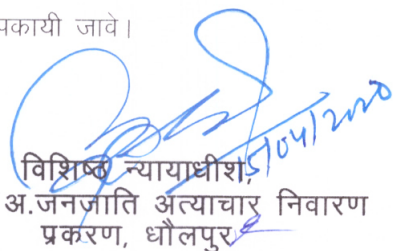 पकायी जावे।
5/04/2020
विशिष्ठ न्यायाधीश,
अ.जनजाति अत्याचार निवारण
प्रकरण, धौलपुर